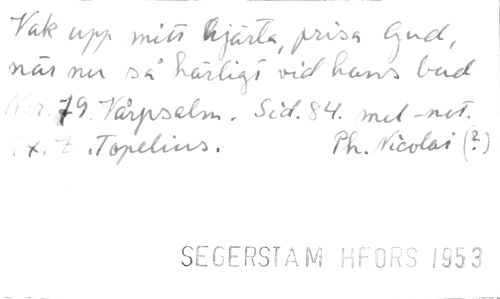 Vak upp mitt hjärta, prisa Gud,
när nu så härligt vid hans bud
Nr. 79. Vårpsalm. Sid. 84. mel-not.
Z. Topelius. Ph. Nicolai (?)
SEGERSTAM HFORS 1953